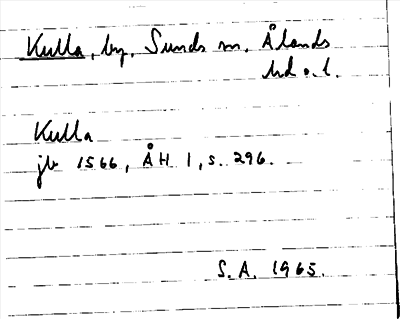 Kulla, by, Sunds sn, Ålands
hd o. l.
Kulla
jb 1566, ÅH 1, s. 296.
S.A. 1965.